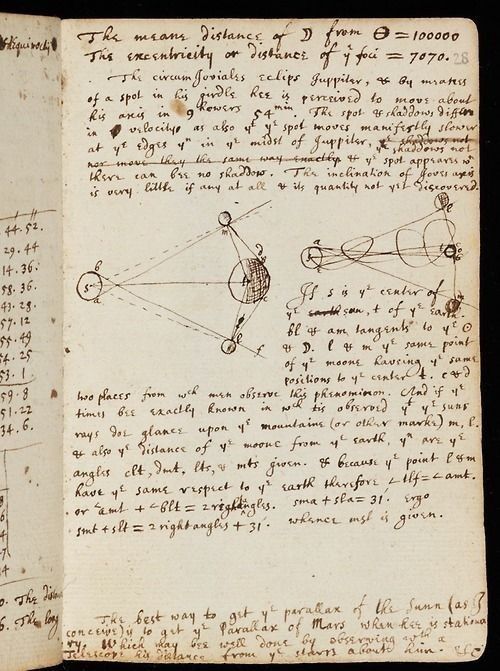 Æquinoctii
44. 52.
29. 44
14. 36.
58. 36.
43. 28.
57. 12
55. 49
54. 25
53. 1
59. 8
51. 22
34. 6.
0. The dista
6. The long
The meane distance of ☽ from ⊖ = 100000
The excentricity or distance of yᵉ foci = 7070.
28
The circumjoviales eclips Juppiter, & by meanes
of a spot in his girdle hee is perceived to move about
his axis in 9 howers 54 min. The spot & shaddows differ
in velocity as also yᵉ spot moves manifestly slower
at yᵉ edges yⁿ in yᵉ midst of Juppiter, yᵉ shaddows not
nor move they the same way exactly & yᵉ spot appeares
there can bee no shaddow. The inclination of Joves axis
is very little if any at all & its quantity not yet discovered.
s
b
a
m
d
c
l
f
s
a
b
If s is yᵉ center of
yᵉ earth sun, t of yᵉ earth.
bl & am tangents to yᵉ ☉
& ☽. l & m yᵉ same point
of yᵉ moone having yᵉ same
positions to yᵉ center t. c & d
two places from wᶜʰ men observe this phenominon. And if yᵉ
times bee exactly known in wᶜʰ tis observed yᵗ yᵉ suns
rays doe glance upon yᵉ mountaine (or other marke) m, l.
& also yᵉ distance of yᵉ moone from yᵉ earth, yⁿ are yᵉ
angles clt, dmt, lts, & mts given. & because yᵉ point l & m
have yᵉ same respect to yᵉ earth therefore ∠tlf = ∠amt.
or ∠amt + ∠blt = 2 right angles. sma + sla = 31. ergo
smt + slt = 2 right angles + 31. whence msl is given.
The best way to get yᵉ parallax of the Sunn (as I
conceive) is to get yᵉ Parallax of Mars when hee is stationa
ry. Which may bee well done by observing with a
Telescope his distance from yᵉ starrs about him. &c